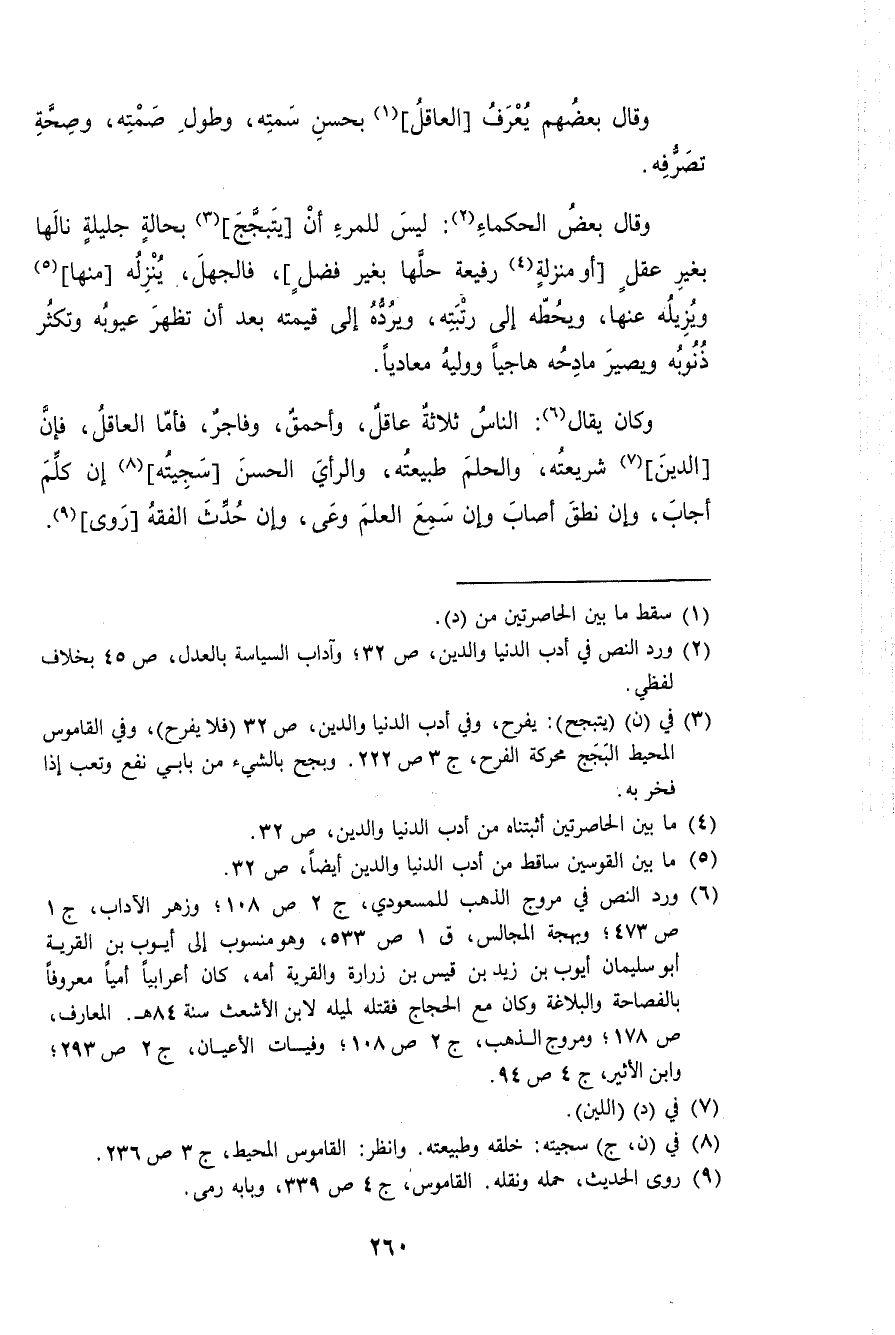 وقال بعضُهم يُعْرَفُ [العاقلُ](١) بحسنِ سَمتِه، وطولِ صَمْتِه، وصِحَّةِ
تصَرُّفِه.
وقال بعضُ الحكماءِ(٢): ليسَ للمرءِ أنْ [يتَبجَّجَ](٣) بحالةٍ جليلةٍ نالَها
بغيرِ عقلٍ [أو منزلةٍ(٤) رفيعة حلَّها بغير فضلٍ]، فالجهلَ، يُنْزِلُه [منها](٥)
ويُزيلُه عنها، ويحُطّه إلى رتْبَتِه، ويرُدُّهُ إلى قيمته بعد أن تظهرَ عيوبُه وتكثُر
ذُنُوبُه ويصيرَ مادِحُه هاجياً ووليهُ معادياً.
وكان يقال(٦): الناسُ ثلاثةٌ عاقلٌ، وأحمقٌ، وفاجرٌ، فأمّا العاقلُ، فإنَّ
[الدينَ](٧) شريعتُه، والحلمَ طبيعتُه، والرأيَ الحسنَ [سَجِيتُه](٨) إن كلِّمَ
أجابَ، وإن نطقَ أصابَ وإن سَمِعَ العلمَ وعَى، وإن حُدِّثَ الفقهُ [رَوى](٩).
(١) سقط ما بين الحاصرتين من (د).
(٢) ورد النص في أدب الدنيا والدين، ص ٣٢؛ وآداب السياسة بالعدل، ص ٤٥ بخلاف
لفظي.
(٣) في (ن) (يتبجح): يفرح، وفي أدب الدنيا والدين، ص ٣٢ (فلا يفرح)، وفي القاموس
المحيط البَجَج محركة الفرح، ج ٣ ص ٢٢٢. وبجح بالشيء من بابي نفع وتعب إذا
فخر به.
(٤) ما بين الحاصرتين أثبتناه من أدب الدنيا والدين، ص ٣٢.
(٥) ما بين القوسين ساقط من أدب الدنيا والدين أيضاً، ص ٣٢.
(٦) ورد النص في مروج الذهب للمسعودي، ج ٢ ص ١٠٨؛ وزهر الآداب، ج ١
ص ٤٧٣؛ وبهجة المجالس، ق ١ ص ٥٣٣، وهو منسوب إلى أيوب بن القرية
أبو سليمان أيوب بن زيد بن قيس بن زرارة والقرية أمه، كان أعرابياً أمياً معروفاً
بالفصاحة والبلاغة وكان مع الحجاج فقتله لميله لابن الأشعث سنة ٨٤هـ. المعارف،
ص ١٧٨؛ ومروج الذهب، ج ٢ ص ١٠٨؛ وفيسات الأعيان، ج ٢ ص ٢٩٣؛
وابن الأثير، ج ٤ ص ٩٤.
(٧) في (د) (اللين).
(٨) في (ن، ج) سجيته: خلقه وطبيعته. وانظر: القاموس المحيط، ج ٣ ص ٢٣٦.
(٩) روى الحديث، حمله ونقله. القاموس، ج ٤ ص ٣٣٩، وبابه رمى.
٢٦٠